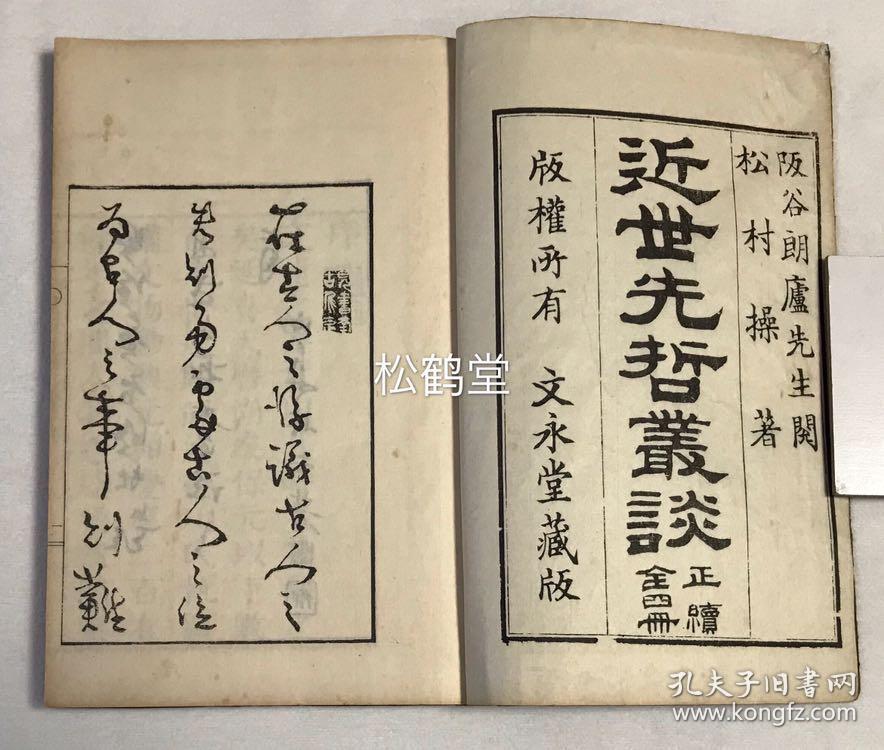 阪谷朗廬先生閱
松村操著
近世先哲叢談
正續
全四冊
版權所有 文永堂藏版
在古人之後議古人之
失則易處古人之位
為古人之事則難
松鹤堂
孔夫子旧书网
www.kongfz.com